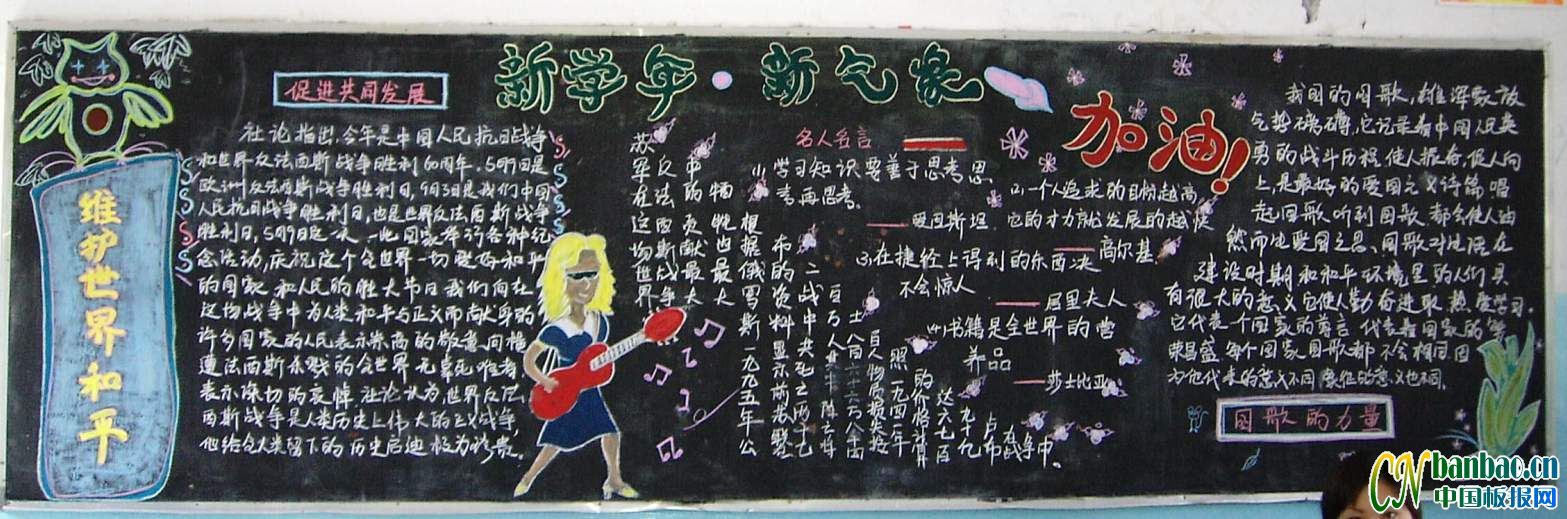 新学年·新气象
加油!
维护世界和平
促进共同发展
社论指出,今年是中国人民抗日战争
和世界反法西斯战争胜利60周年。5月9日是
欧洲反法西斯战争胜利日,9月3日是我们中国
人民抗日战争胜利日,也是世界反法西斯战争
胜利日,5月9日这一天,一些国家举行各种纪
念活动,庆祝这个全世界一切爱好和平
的国家和人民的胜大节日我们向在
这场战争中为人类和平与正义而献身的
许多国家的人民表示崇高的敬意,向惨
遭法西斯杀戮的全世界无辜死难者
表示深切的哀悼社论认为,世界反法
西斯战争是人类历史上伟大的正义战争,
他给全人类留下的历史启迪极为珍贵。
苏军在这场
反法西斯战争
中的贡献最大
牺牲也最大
根据俄罗斯一九九五年公
布的资料显示前苏联
二战中共死亡两千七
名人名言
(1)学习知识要善于思考思
考再思考。
——爱因斯坦
(2)一个人追求的目标越高,
它的才力就发展的越快
——高尔基
(3)在捷径上得到的东西决
不会惊人
——居里夫人
(4)书籍是全世界的营
养品
——莎士比亚
我国的国歌,雄浑豪放
气势磅礴,它记录着中国人民英
勇的战斗历程,使人振奋,促人向
上,是最好的爱国主义诗篇唱
起国歌听到国歌都会使人油
然而生爱国之思、国歌对生活在
建设时期和和平环境里的人们具
有很大的意义它使人勤奋进取,热爱学习。
它代表一个国家的尊言代表着国家的繁
荣昌盛每个国家国歌都不会相同因
为他代表的意义不同象征的意义也不同。
国歌的力量
CN banbao.cn
中国板报网